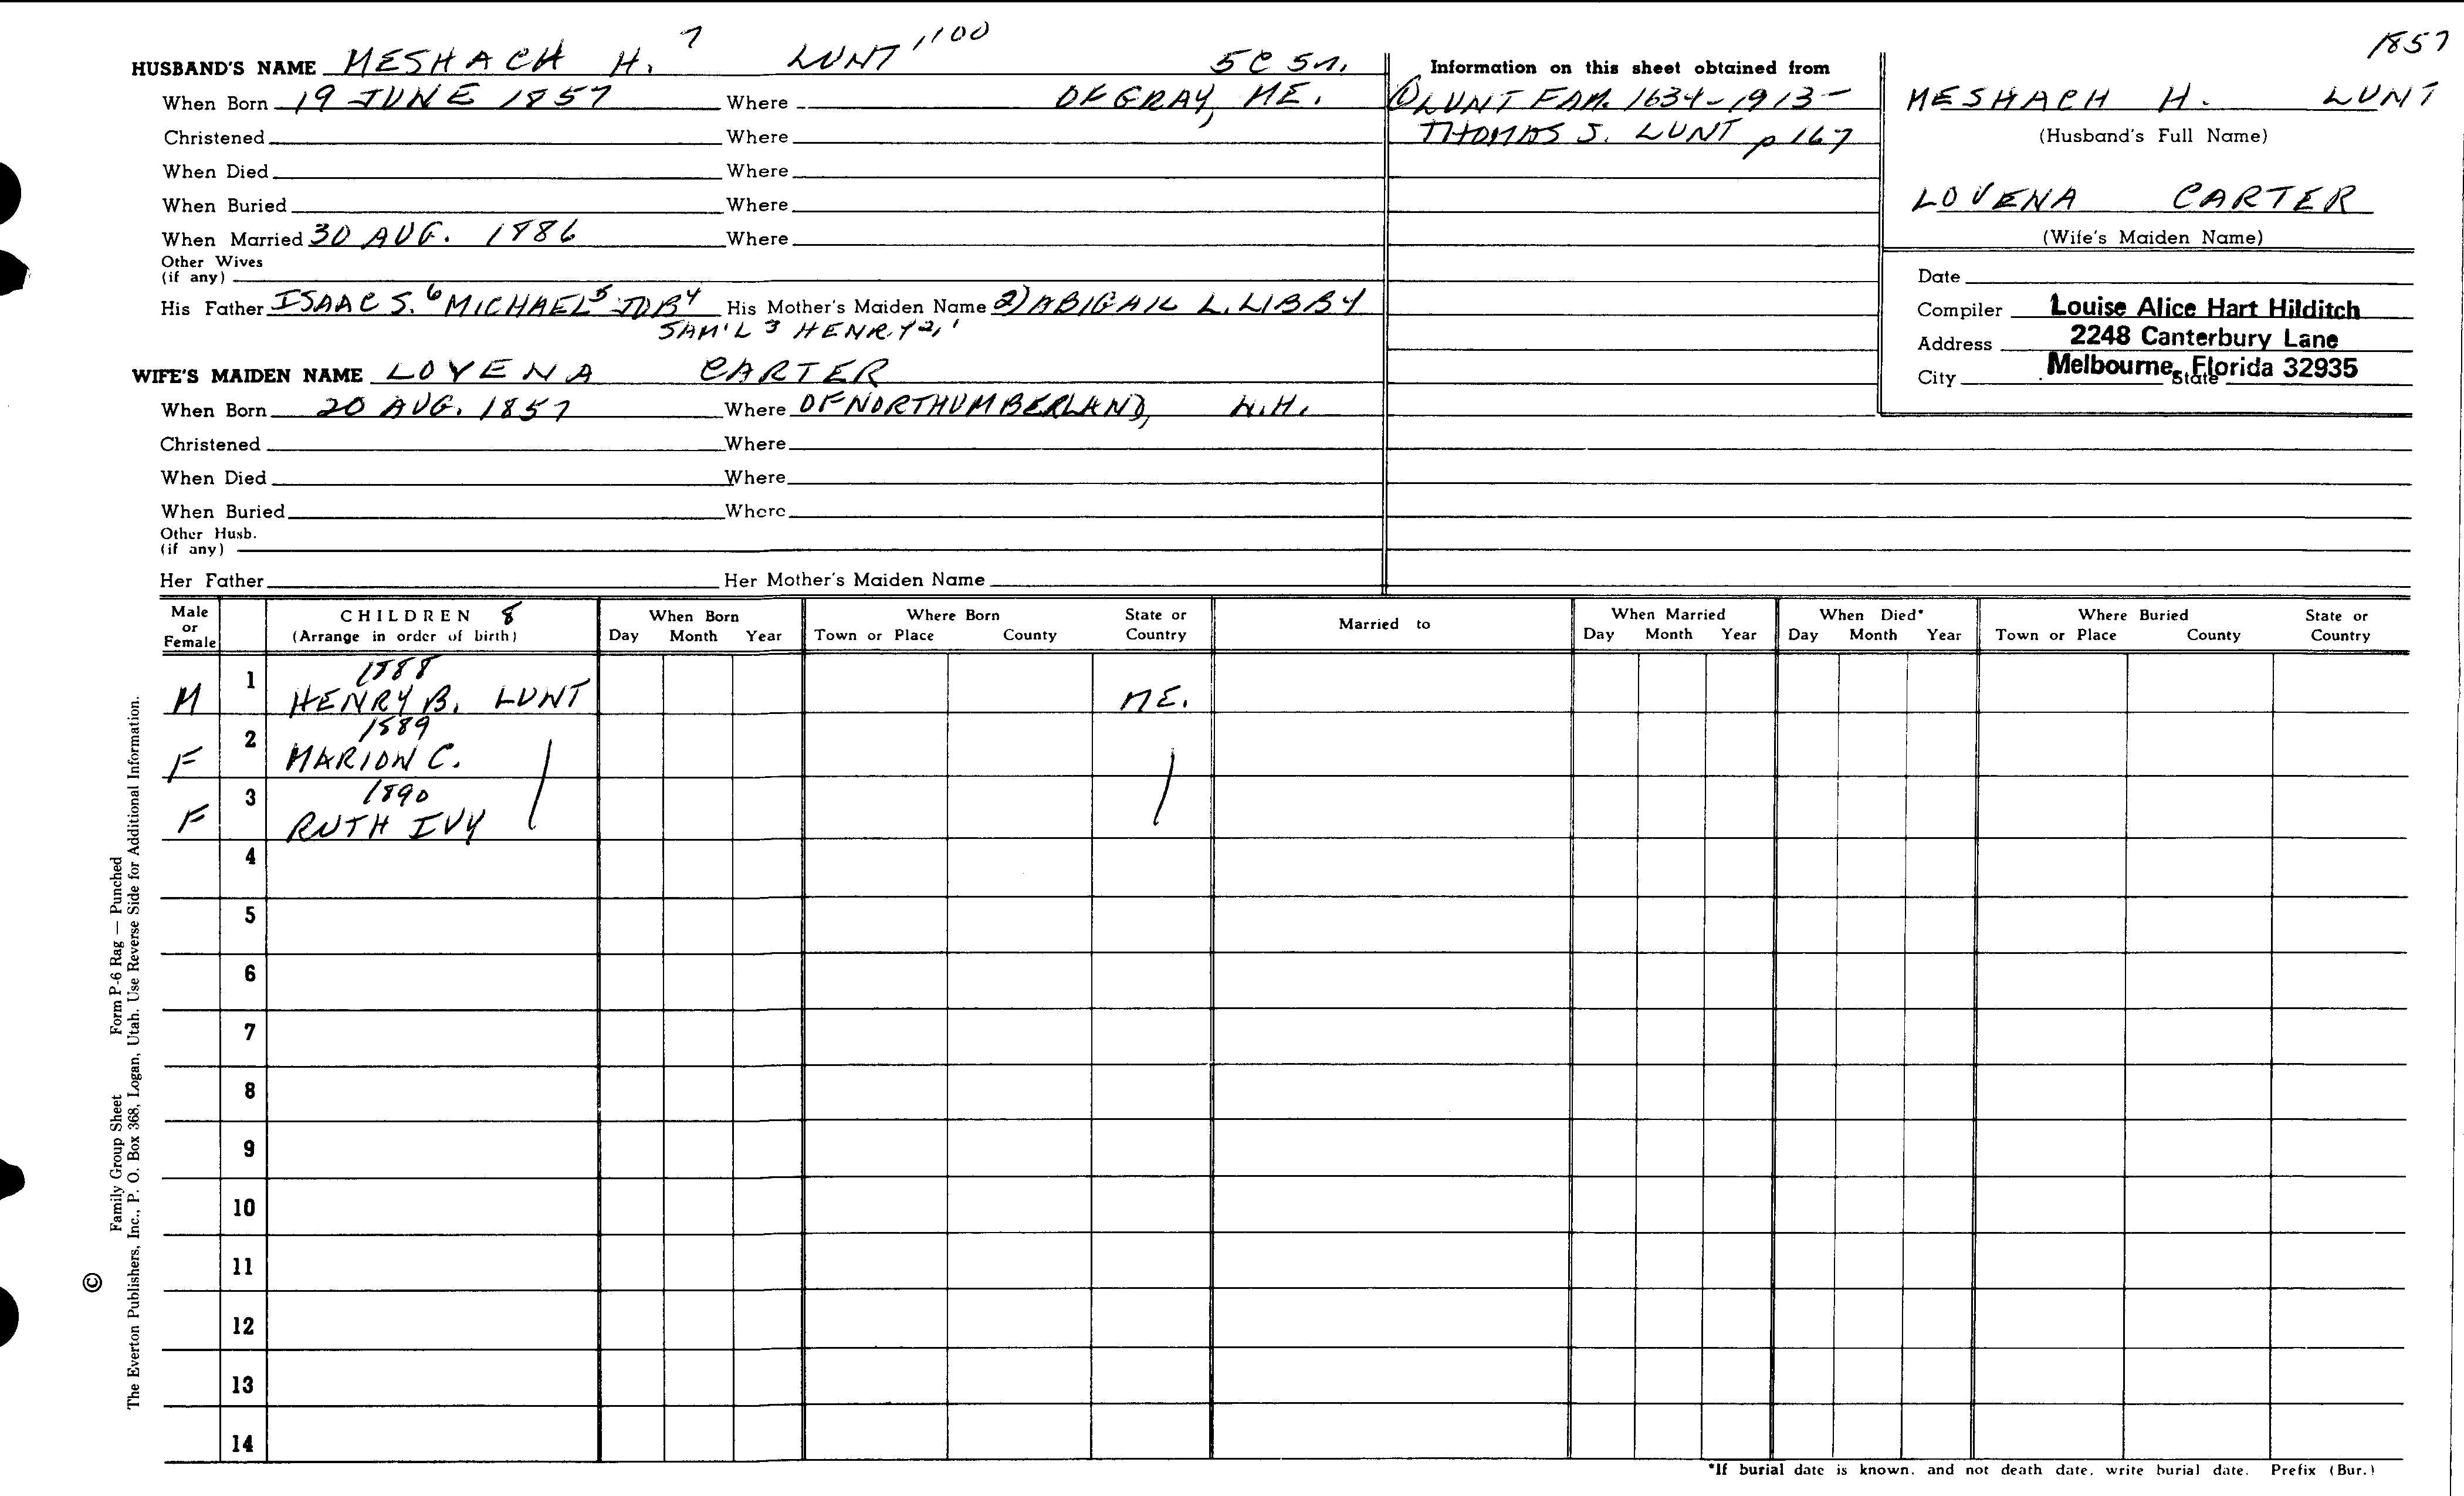 1857
HUSBAND'S NAME MESHACH H. 7 LUNT 1100 5C 5n.
When Born 19 JUNE 1857 Where OF GRAY, ME.
Christened Where
When Died Where
When Buried Where
When Married 30 AUG. 1886 Where
Other Wives
(if any)
His Father ISAAC S. 6 MICHAEL 5 JOB 4 His Mother's Maiden Name 2) ABIGAIL L. LIBBY
SAM'L 3 HENRY 2, 1
WIFE'S MAIDEN NAME LOVENA CARTER
When Born 20 AUG. 1857 Where OF NORTHUMBERLAND, N.H.
Christened Where
When Died Where
When Buried Where
Other Husb.
(if any)
Her Father Her Mother's Maiden Name
Information on this sheet obtained from
① LUNT FAM. 1634-1913-
THOMAS S. LUNT p 167
MESHACH H. LUNT
(Husband's Full Name)
LOVENA CARTER
(Wife's Maiden Name)
Date
Compiler Louise Alice Hart Hilditch
Address 2248 Canterbury Lane
City Melbourne, Florida 32935 State
Male or Female CHILDREN 8 When Born Where Born State or Married to When Married When Died* Where Buried State or
(Arrange in order of birth) Day Month Year Town or Place County Country Day Month Year Day Month Year Town or Place County Country
1 1888
M HENRY B. LUNT ME.
2 1889
F MARION C.
3 1890
F RUTH IVY
4
5
6
7
8
9
10
11
12
13
14
*If burial date is known, and not death date, write burial date. Prefix (Bur.)
Family Group Sheet Form P-6 Rag — Punched
© The Everton Publishers, Inc., P. O. Box 368, Logan, Utah. Use Reverse Side for Additional Information.